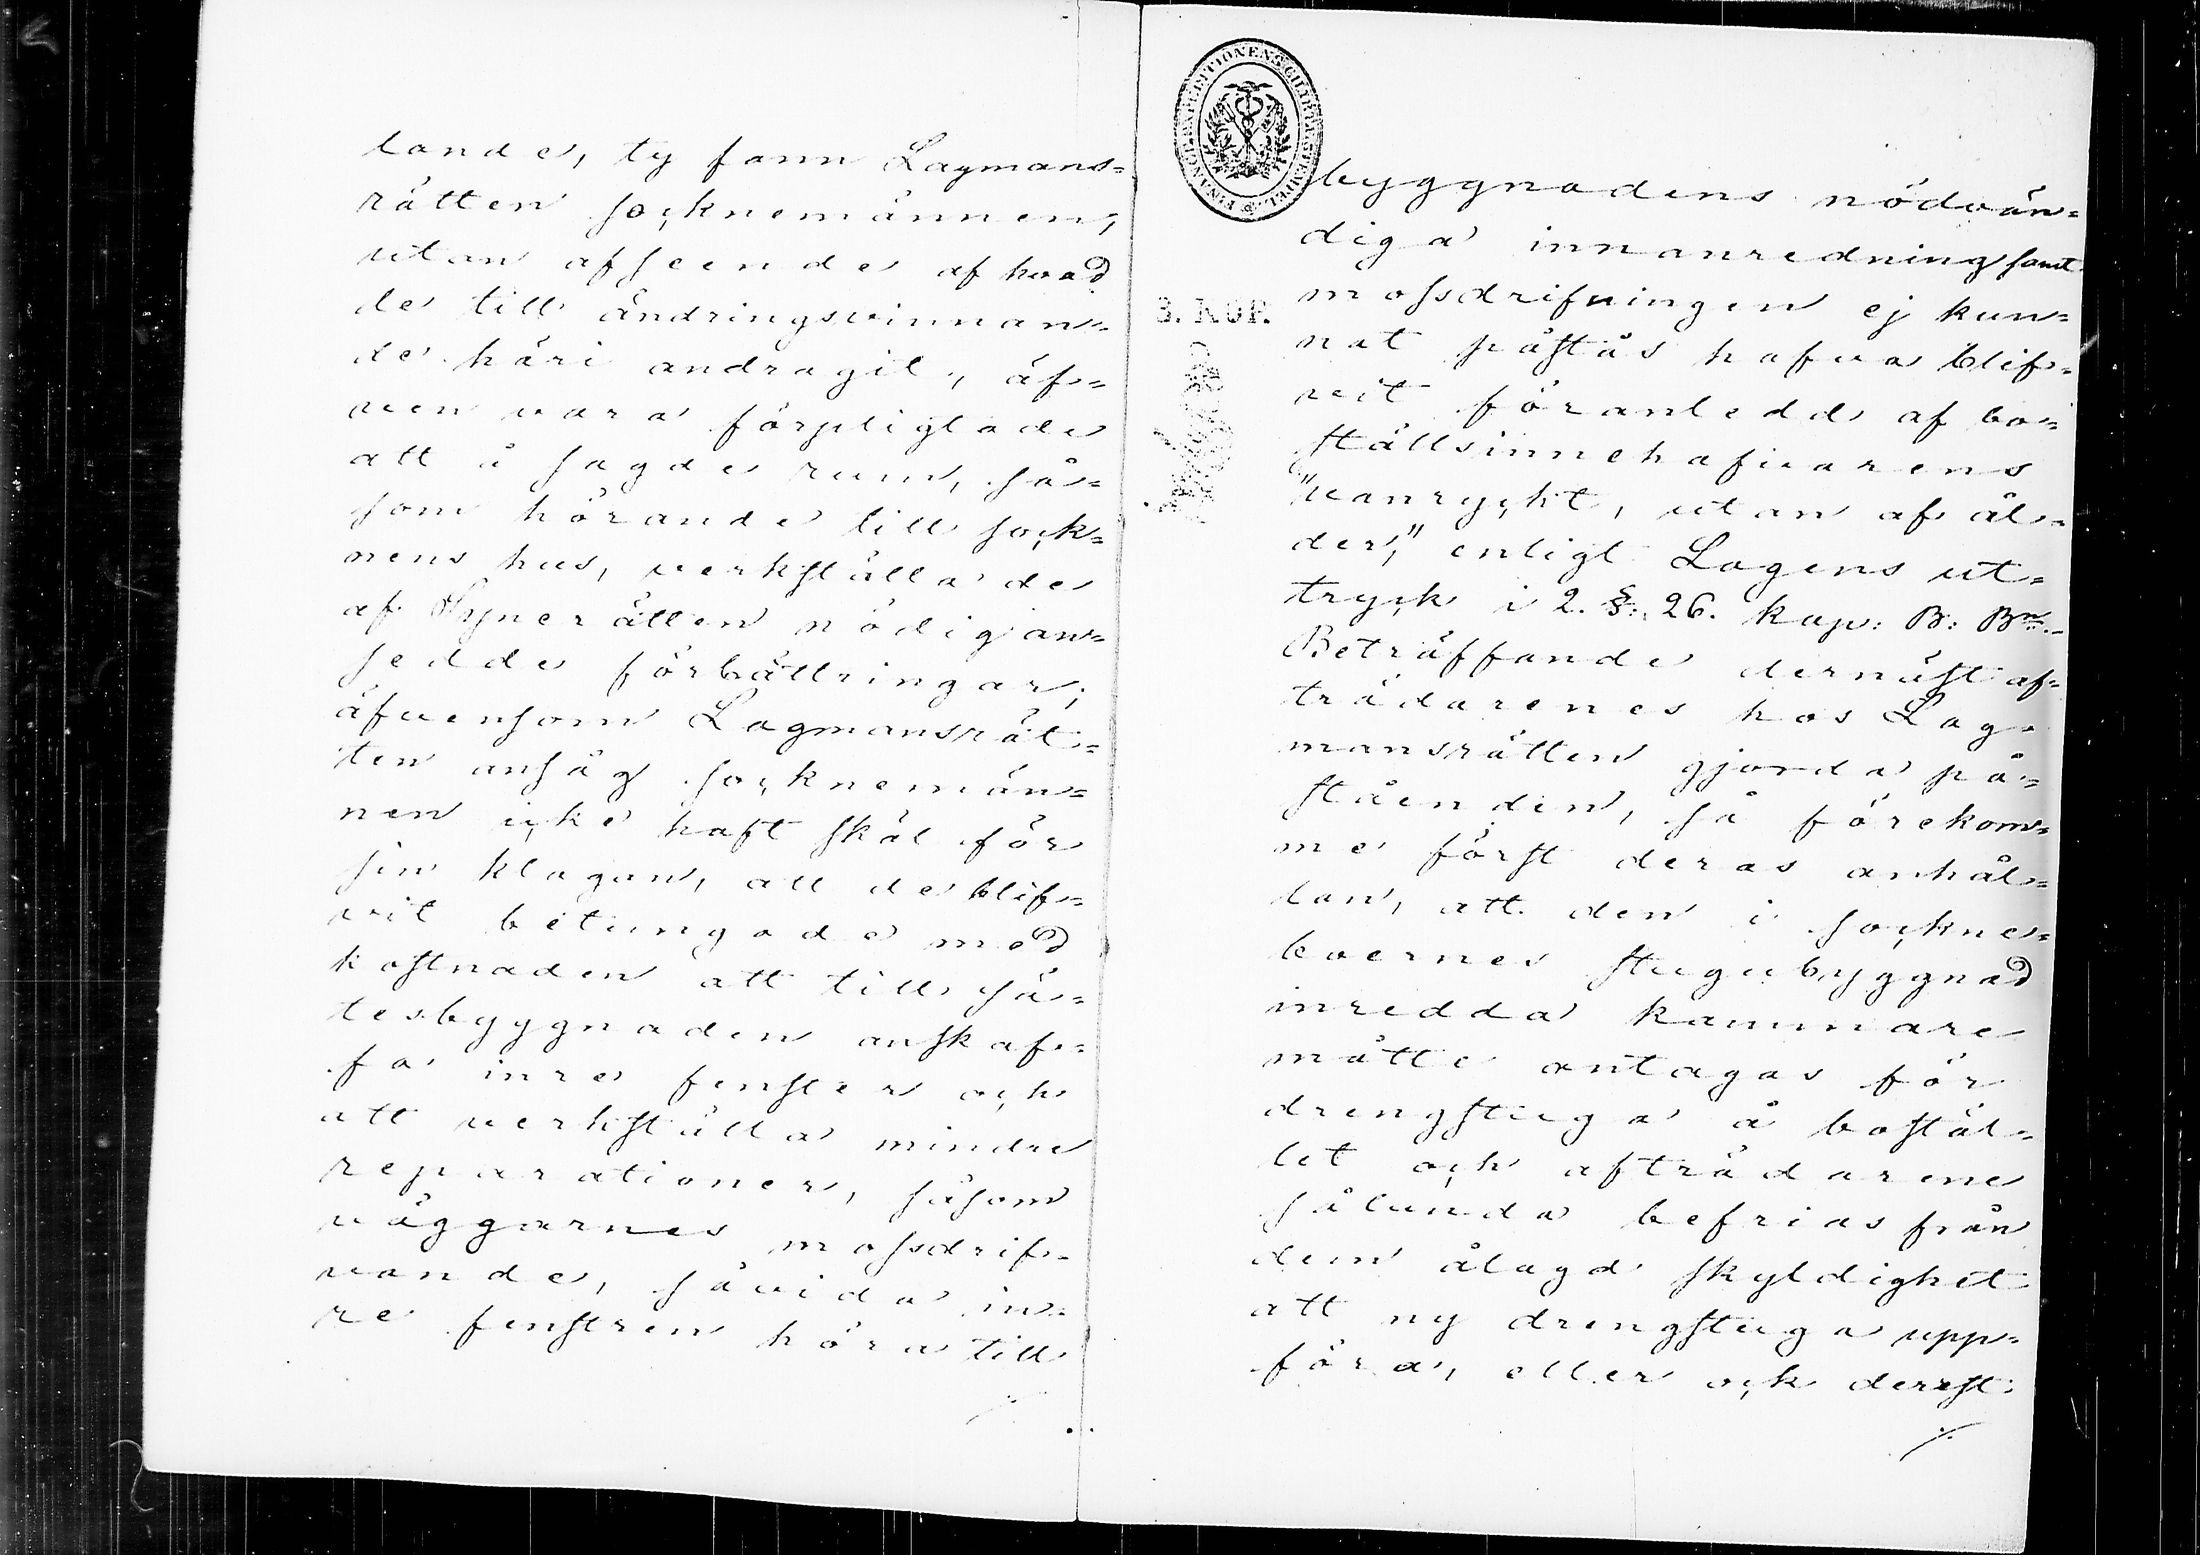 lande, ty fann Lagmans=
rätten socknemännen,
utan afseende af hvad
de till ändringsvinnan=
de häri andragit, äf=
ven vara förpligtade
att å sagde rum, så=
som hörande till sock=
nens hus, verkställa de
af Synerätten nödig an=
sedde förbättringar;
äfvensom Lagmansrät=
ten ansåg socknemän=
nen icke haft skäl för
sin klagan, att de blif=
vit betungade med
kostnaden att till sä=
tesbyggnaden anskaf=
fa inre fenster och
att verkställa mindre
reparationer, såsom
väggarnes mossdrif=
vande, såvida in=
re fenstren höra till
FINANCE EXPEDITIONENS CHARTÆ STEMPEL
3. KOP.
byggnadens nödvän=
diga innanredning samt
mossdrifningen ej kun=
nat påstås hafva blif=
vit föranledd af bo=
ställsinnehafvarens
"vanryckt, utan af ål=
der," enligt Lagens ut=
tryck i 2. §. 26. kap: B: Bn.
Beträffande dernäst af=
trädarenes hos Lag=
mansrätten gjorda på=
ståenden, så förekom=
me först deras anhål=
lan, att den i sockne=
boernes stugubyggnad
inredda kammare
måtte antagas för
drengstuga å bostäl=
let och afträdarene
sålunda befrias från
dem ålagd skyldighet
att ny drengstuga upp=
föra, eller ock derest